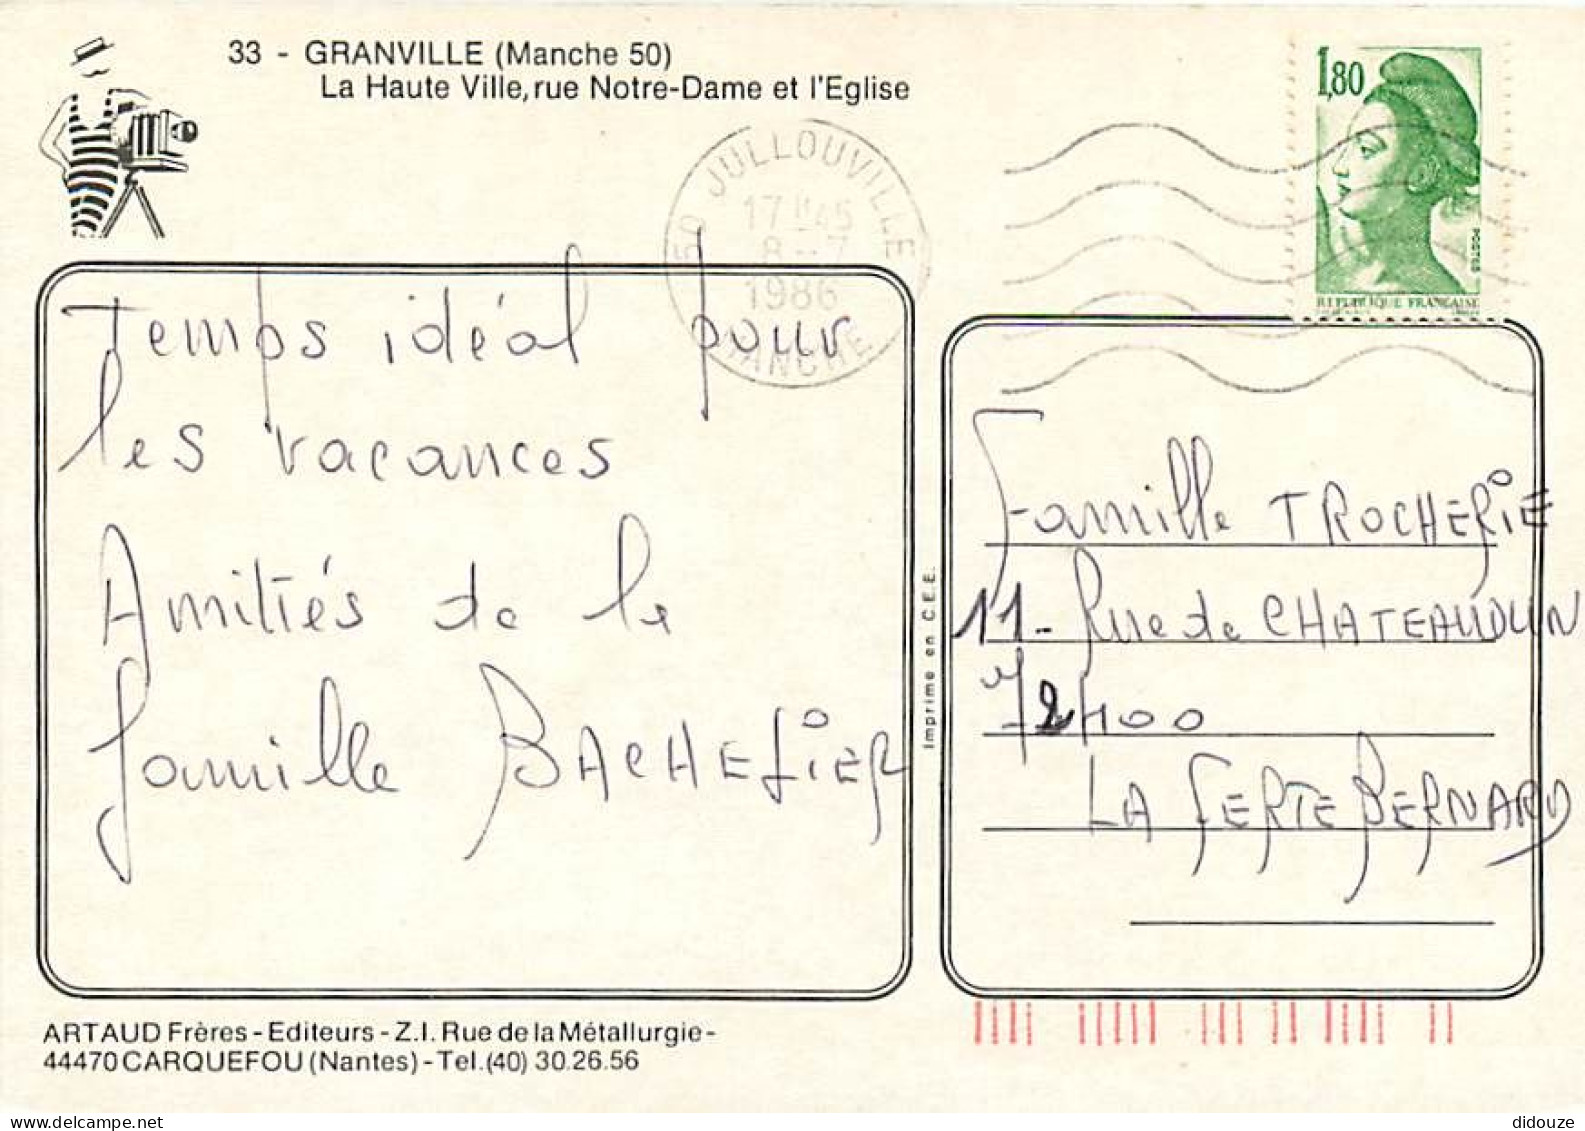 33 - GRANVILLE (Manche 50)
La Haute Ville, rue Notre-Dame et l'Eglise
1,80
POSTES
REPUBLIQUE FRANÇAISE
50 JULLOUVILLE
17 H 45
8 - 7
1986
MANCHE
Temps idéal pour
les vacances
Amitiés de la
famille BACHELIER
Imprimé en C.E.E.
Famille TROCHERIE
11 - Rue de CHATEAUDUN
72400
LA FERTE BERNARD
ARTAUD Frères - Editeurs - Z.I. Rue de la Métallurgie -
44470 CARQUEFOU (Nantes) - Tel. (40) 30.26.56
didouze